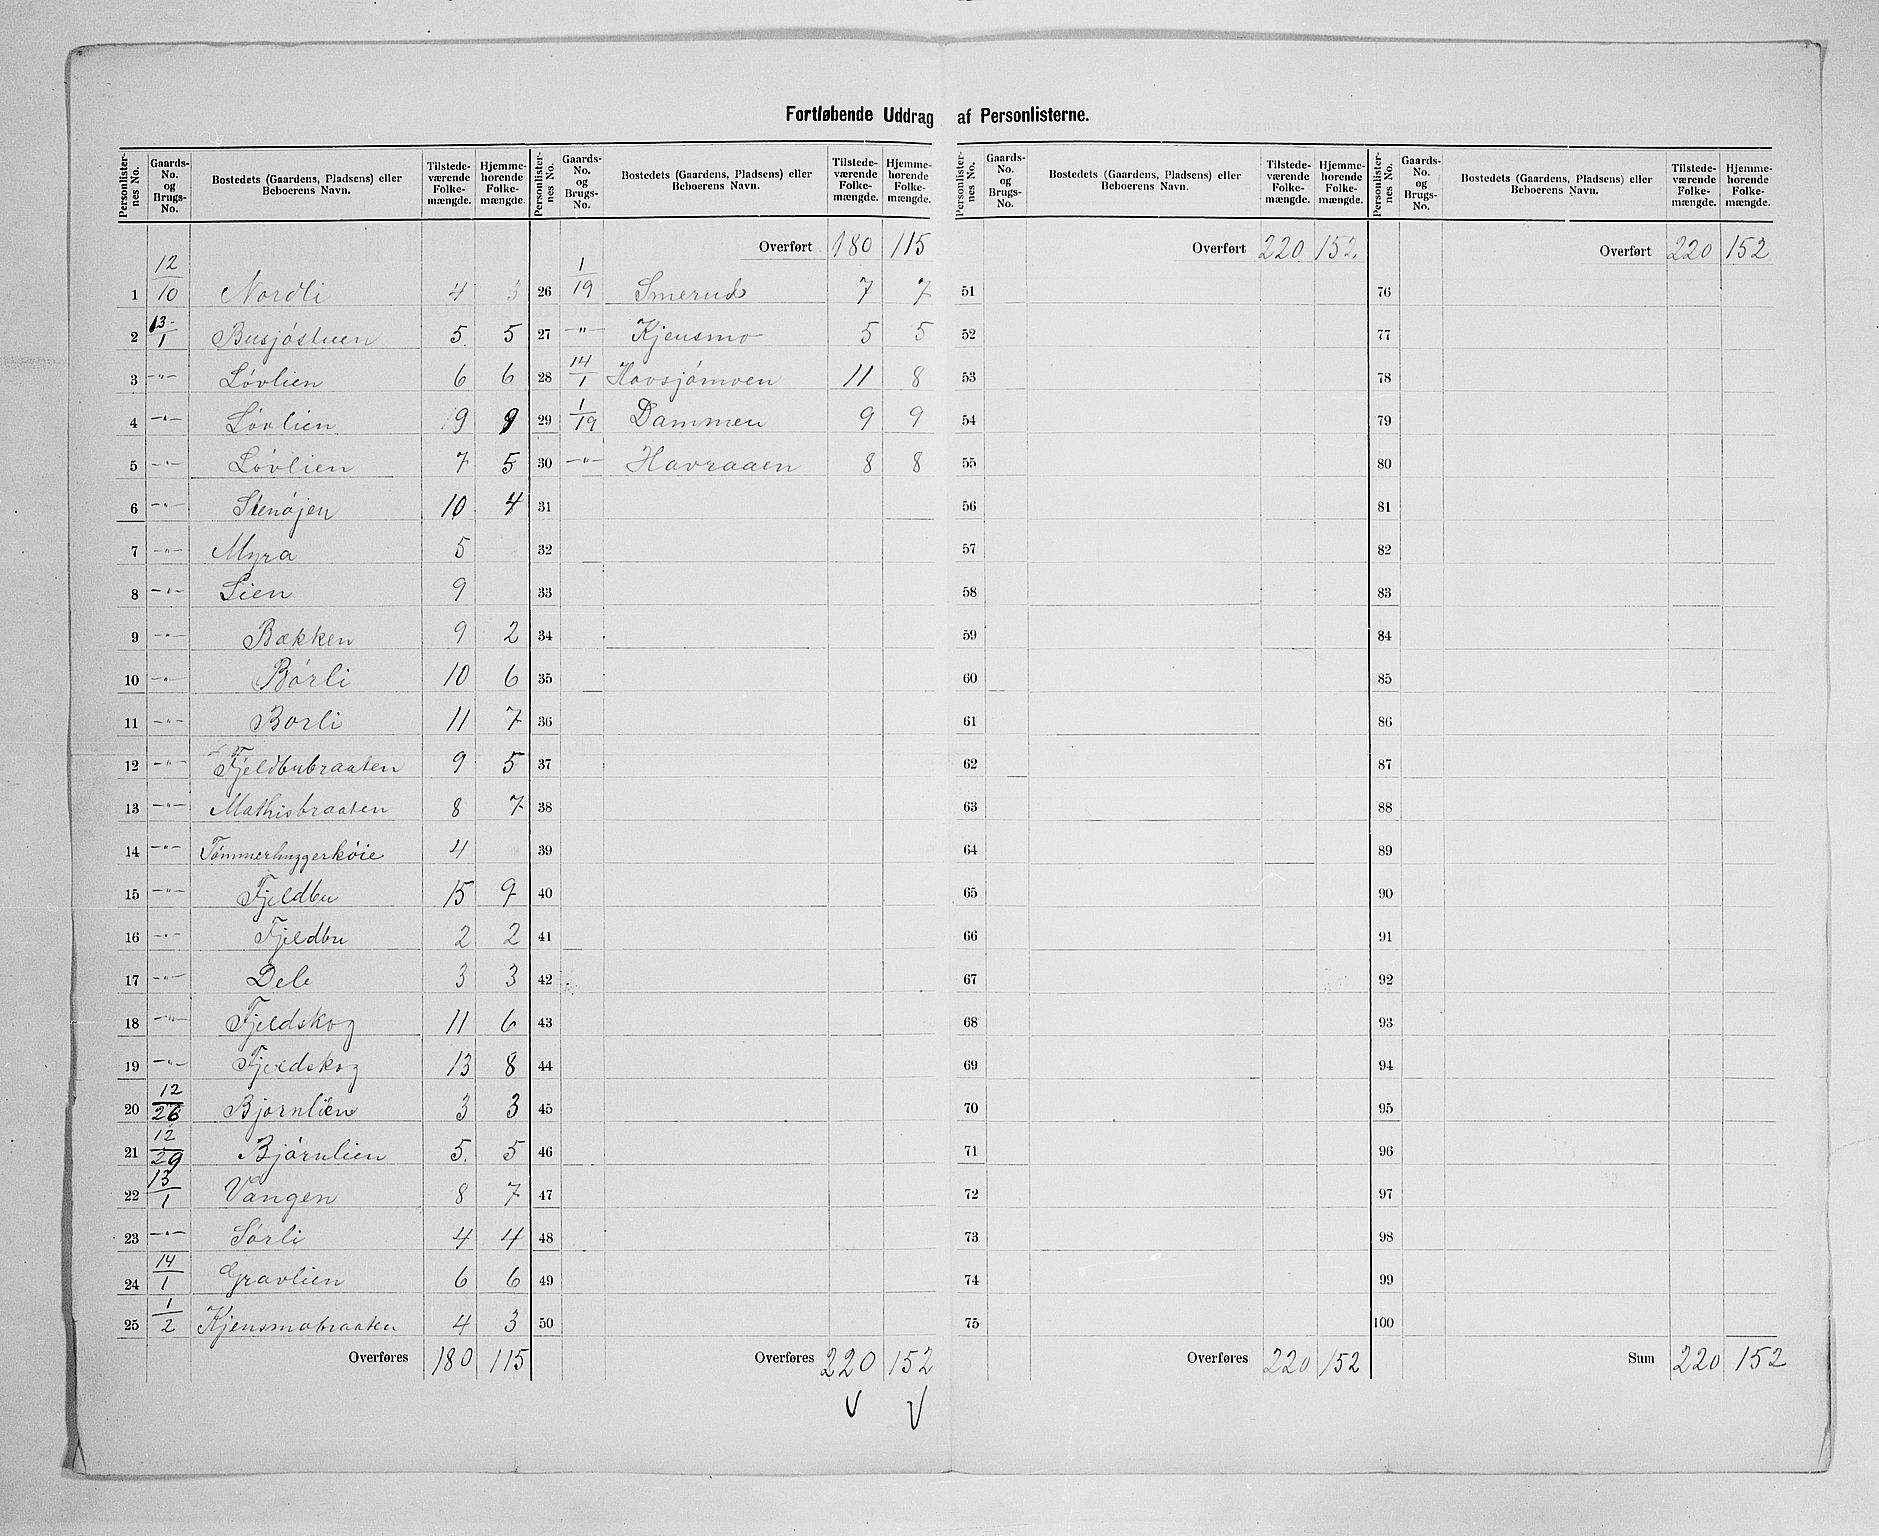 Fortløbende Uddrag af Personlisterne.
Personlister-nes No. | Gaards-No. og Brugs-No. | Bostedets (Gaardens, Pladsens) eller Beboerens Navn. | Tilstede-værende Folke-mængde. | Hjemme-hørende Folke-mængde.
12
1 | 10 | Nordli | 4 | 3
2 | 13/1 | Busjøstuen | 5. | 5
3 | —"— | Løvlien | 6 | 6
4 | —"— | Løvlien | 9 | 9
5 | —"— | Løvlien | 7 | 5
6 | —"— | Stenøjen | 10 | 4
7 | —"— | Myra | 5
8 | —"— | Lien | 9
9 | —"— | Bækken | 9 | 2
10 | —"— | Børli | 10 | 6
11 | —"— | Borli | 11 | 7
12 | —"— | Fjeldbubraaten | 9 | 5
13 | —"— | Mathisbraaten | 8 | 7
14 | —"— | Tømmerhuggerkøie | 4
15 | —"— | Fjeldbu | 15 | 9
16 | —"— | Fjeldbu | 2 | 2
17 | —"— | Dele | 3 | 3
18 | —"— | Fjeldskog | 11 | 6
19 | —"— | Fjeldskog | 13 | 8
20 | 12/26 | Bjørnlien | 3 | 3
21 | 12/29 | Bjørnlien | 5. | 5
22 | 13/1 | Vangen | 8 | 7
23 | —"— | Sørli | 4 | 4
24 | 14/1 | Gravlien | 6 | 6
25 | 1/2 | Kjensmobraaten | 4 | 3
Overføres | 180 | 115
Personlister-nes No. | Gaards-No. og Brugs-No. | Bostedets (Gaardens, Pladsens) eller Beboerens Navn. | Tilstede-værende Folke-mængde. | Hjemme-hørende Folke-mængde.
Overført | 180 | 115
26 | 1/19 | Smerud | 7 | 7
27 | —"— | Kjensmo | 5 | 5
28 | 14/1 | Havsjømoen | 11 | 8
29 | 1/19 | Dammen | 9 | 9
30 | —"— | Havraaen | 8 | 8
31
32
33
34
35
36
37
38
39
40
41
42
43
44
45
46
47
48
49
50
Overføres | 220 | 152
Personlister-nes No. | Gaards-No. og Brugs-No. | Bostedets (Gaardens, Pladsens) eller Beboerens Navn. | Tilstede-værende Folke-mængde. | Hjemme-hørende Folke-mængde.
Overført | 220 | 152
51
52
53
54
55
56
57
58
59
60
61
62
63
64
65
66
67
68
69
70
71
72
73
74
75
Overføres | 220 | 152
Personlister-nes No. | Gaards-No. og Brugs-No. | Bostedets (Gaardens, Pladsens) eller Beboerens Navn. | Tilstede-værende Folke-mængde. | Hjemme-hørende Folke-mængde.
Overført | 220 | 152
76
77
78
79
80
81
82
83
84
85
86
87
88
89
90
91
92
93
94
95
96
97
98
99
100
Sum | 220 | 152